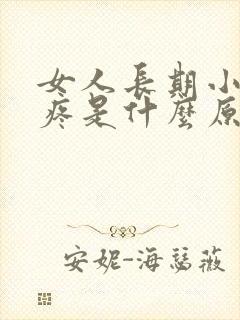 女人長期小
疼是什麼原
安妮-海瑟薇